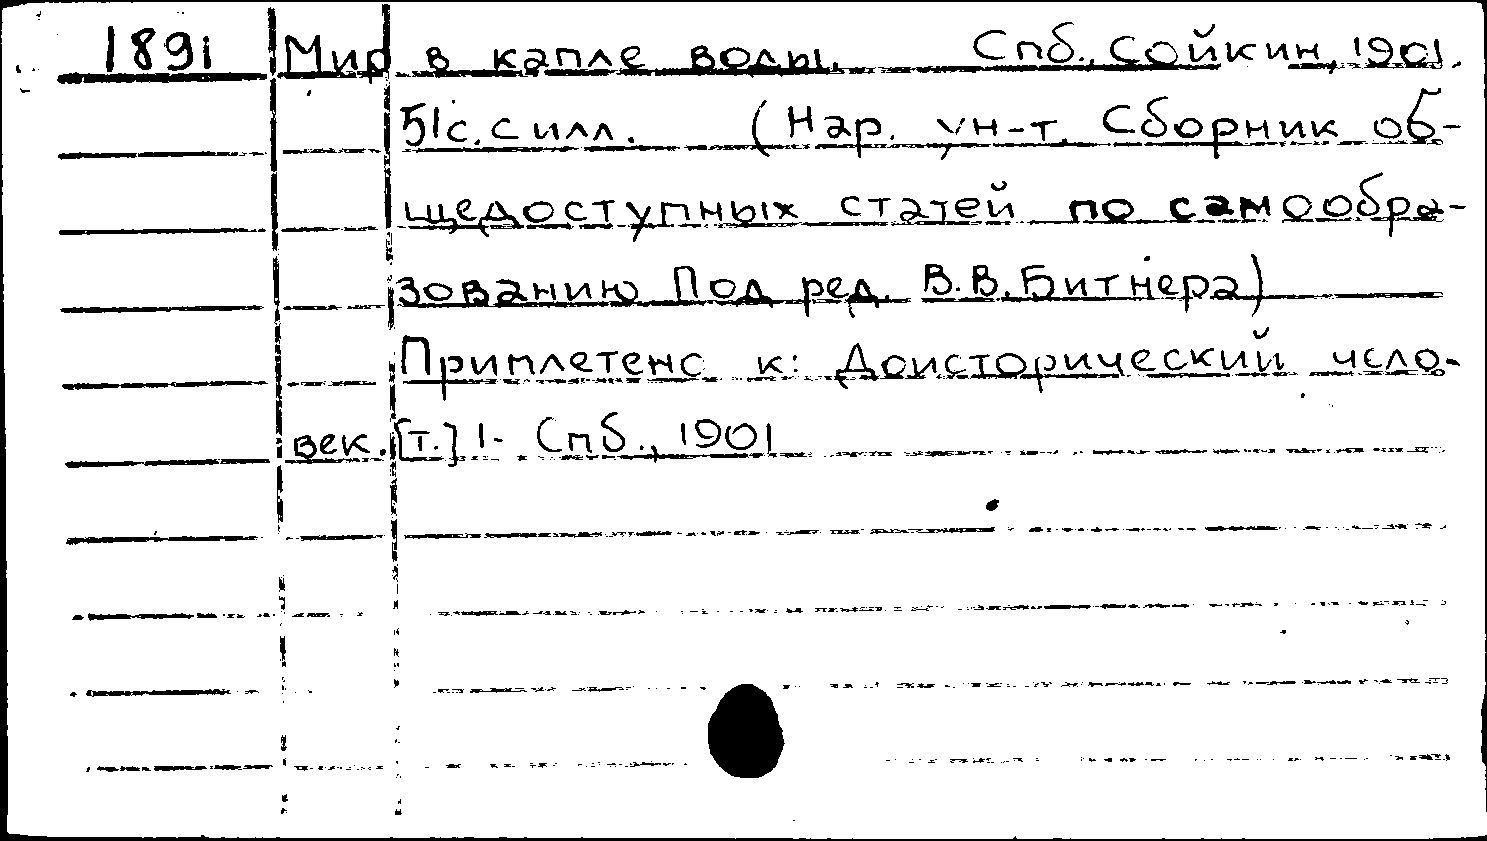 1891 Мир в капле воды. Спб., Сойкин, 1901.
51с. с илл. (Нар. ун-т. Сборник об-
щедоступных статей по самообра-
зованию Под ред. В.В. Битнера)
Приплетено к: Доисторический чело-
век. [т.] 1- Спб., 1901